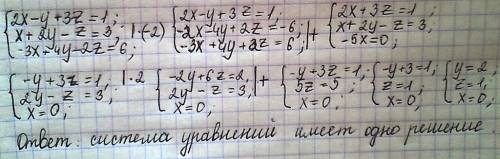 {2x-y+3z=1,; x+2y-z=3,; -3x+4y-2z=6,; |·(-2) {2x-y+3z=1,; -2x-4y+2z=-6,; -3x+4y+2z=6,; |+ {2x+3z=1,; x+2y-z=3,; -5x=0,;
{-y+3z=1,; 2y-z=3,; x=0,; |·2 {-2y+6z=2,; 2y-z=3,; x=0,; |+ {-y+3z=1,; 5z=5,; x=0,; {-y+3=1,; z=1,; x=0,; {y=2,; z=1,; x=0,;
Ответ: система уравнений имеет одно решение